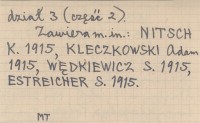 dział 3 (część 2).
Zawiera m.in.: NITSCH
K. 1915, KLECZKOWSKI Adam
1915, WĘDKIEWICZ S. 1915,
ESTREICHER S. 1915.
MT